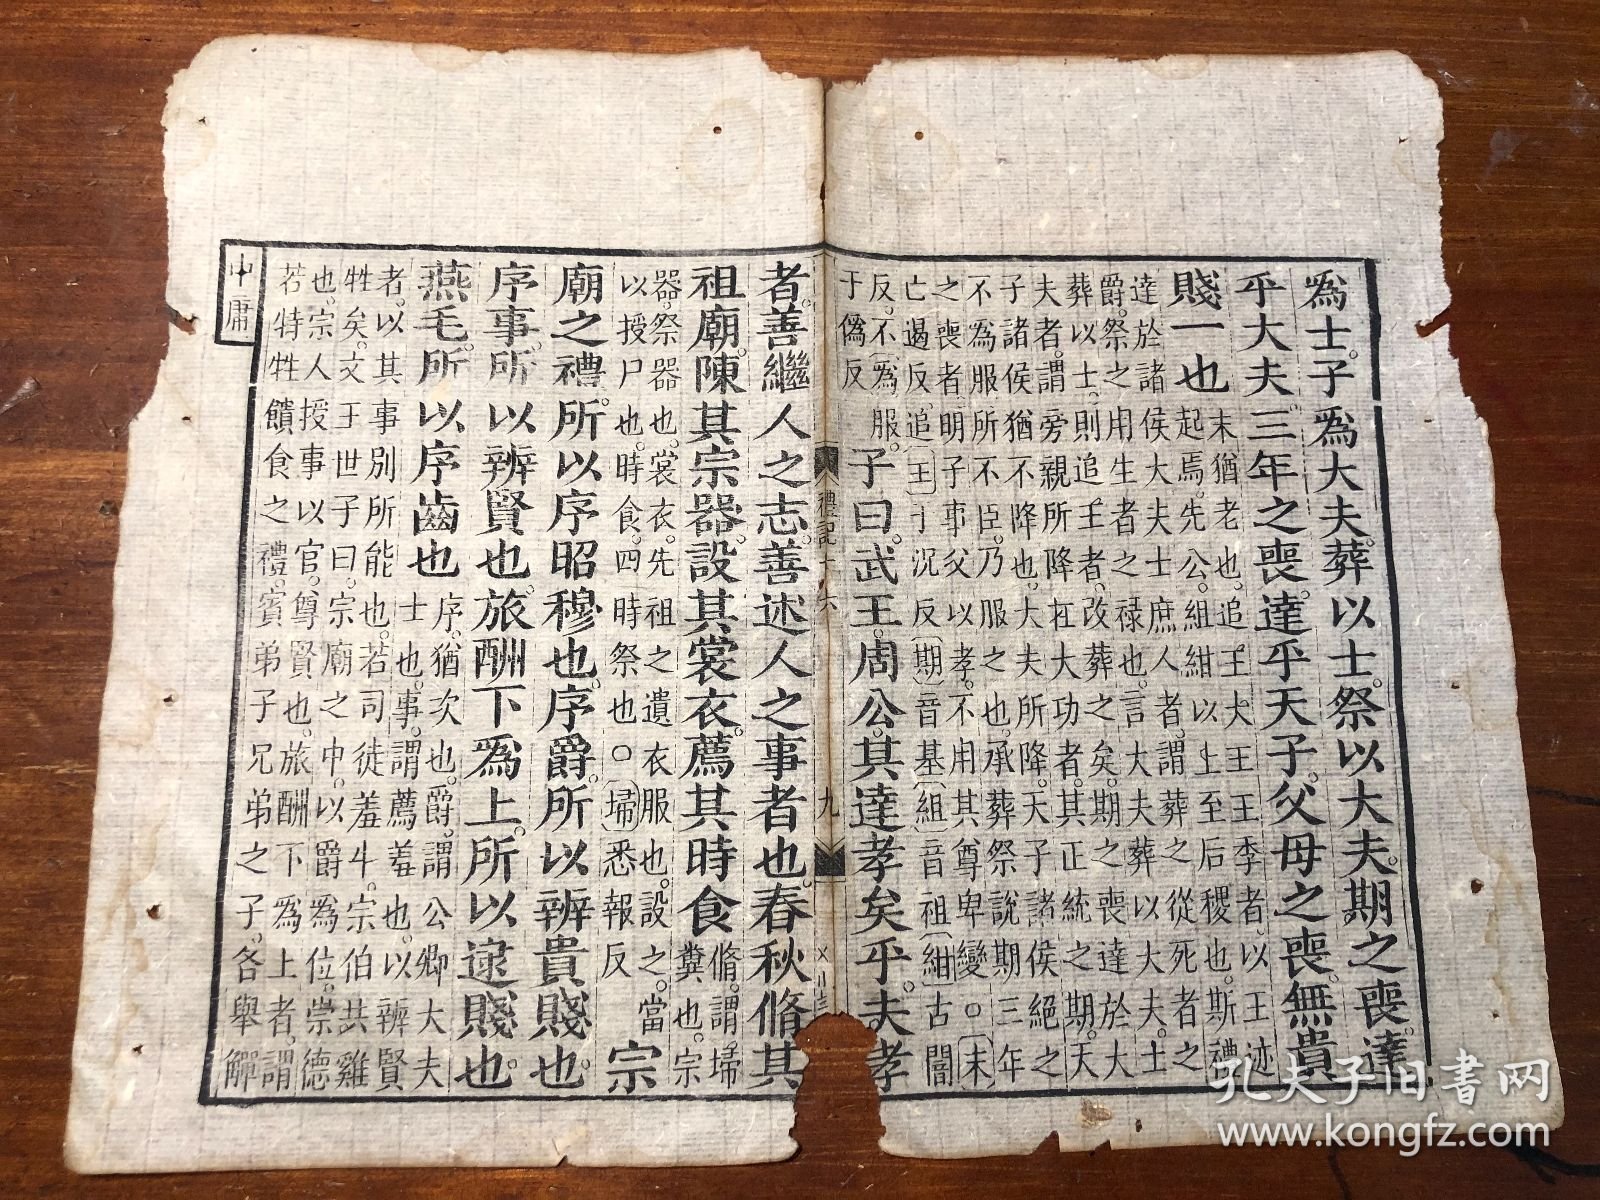 爲士。子爲大夫。葬以士。祭以大夫。期之喪。達
乎大夫。三年之喪。達乎天子。父母之喪。無貴
賤一也
末猶老也。追王大王王季者。以王迹
起焉。先公組紺以上至后稷也。斯禮
達於諸侯大夫士庶人者。謂葬之從死者之
爵。祭之用生者之禄也。言大夫葬以大夫。士
葬以士。則追王者。改葬之矣。期之喪達於大
夫者。謂旁親所降在大功者。其正統之期。天
子諸侯猶不降也。大夫所降。天子諸侯絕之
不爲服。所不臣。乃服之也。承葬祭說期三年
之喪者。明子事父以孝。不用其尊卑變。○〔末〕
亡遏反。追〔王〕于況反〔期〕音基〔組〕音祖〔紺〕古闇
反。不爲服。
于僞反
子曰。武王周公。其達孝矣乎。夫孝
禮記十六
九
者。善繼人之志。善述人之事者也。春秋脩其
祖廟。陳其宗器。設其裳衣。薦其時食
脩。謂埽
糞也。宗
器。祭器也。裳衣。先祖之遺衣服也。設之。當
以授尸也。時食。四時祭也。○〔埽〕悉報反
宗
廟之禮。所以序昭穆也。序爵。所以辨貴賤也。
序事。所以辨賢也。旅酬下爲上。所以逮賤也。
燕毛。所以序齒也
序。猶次也。爵。謂公卿大夫
士也。事。謂薦羞也。以辨賢
者。以其事別所能也。若司徒羞牛。宗伯共雞
牲矣。文王世子曰。宗廟之中。以爵爲位。崇德
也。宗人授事以官。尊賢也。旅酬下爲上者。謂
若特牲饋食之禮。賓弟子兄弟之子。各舉觶
中庸
孔夫子旧書网
www.kongfz.com